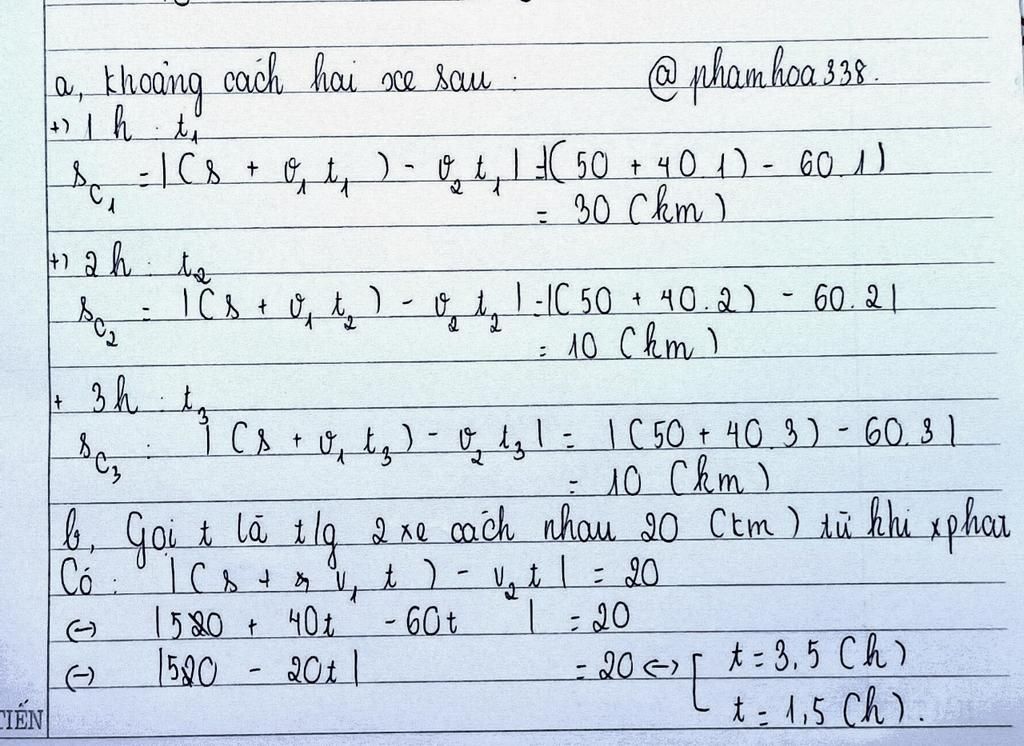 a, Khoảng cách hai xe sau : @phamhoa338.
+) 1 h : t₁
s_C₁ = |(s + v₁ t₁) - v₂ t₁| = |(50 + 40.1) - 60.1|
= 30 (km)
+) 2 h : t₂
s_C₂ = |(s + v₁ t₂) - v₂ t₂| = |(50 + 40.2) - 60.2|
= 10 (km)
+ 3h : t₃
s_C₃ : |(s + v₁ t₃) - v₂ t₃| = |(50 + 40.3) - 60.3|
= 10 (km)
b, Gọi t là t/g 2 xe cách nhau 20 (km) từ khi xphat
Có : |(s + v₁ t) - v₂ t| = 20
<-> |50 + 40t - 60t | = 20
<-> |50 - 20t| = 20 <-> [ t = 3,5 (h)
t = 1,5 (h).
TIẾN